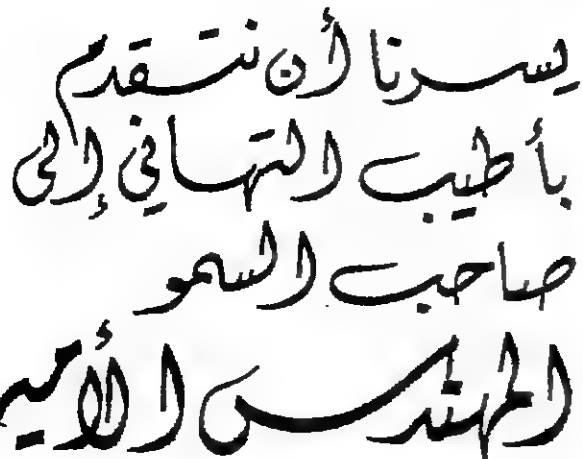 يسرنا أن نتقدم
بأطيب التهاني إلى
صاحب السمو
المهندس الأمير